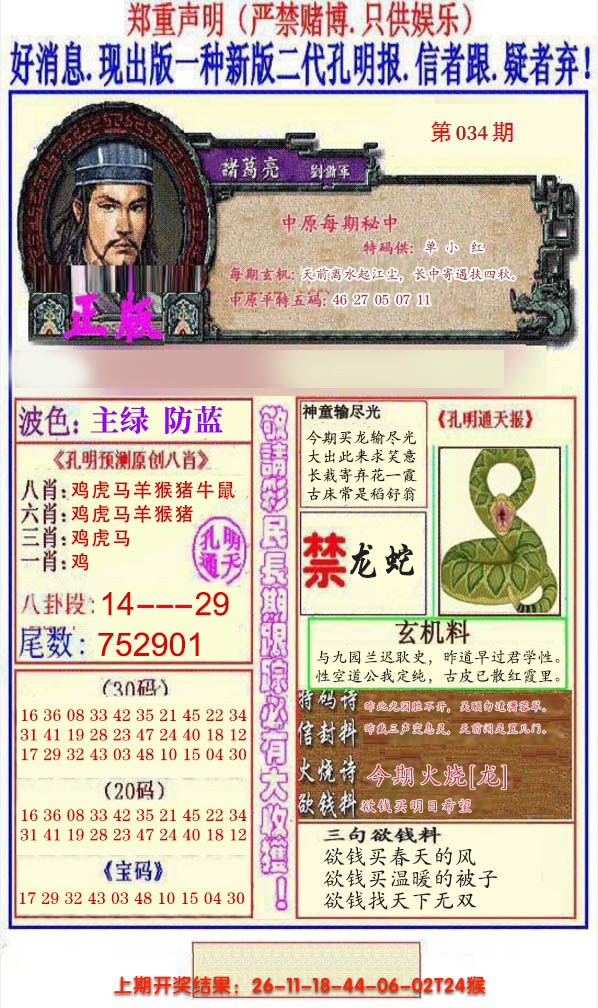 郑重声明（严禁赌博.只供娱乐）
好消息.现出版一种新版二代孔明报.信者跟.疑者弃!
第034期
諸葛亮 劉備軍
中原每期秘中
特码供：单 小 红
每期玄机：天前离水起江尘，长中寄遇扶四秋。
中原平特五码：46 27 05 07 11
正版
波色：主绿 防蓝
《孔明预测原创八肖》
八肖：鸡虎马羊猴猪牛鼠
六肖：鸡虎马羊猴猪
三肖：鸡虎马
一肖：鸡
孔明通天
八卦段：14---29
尾数：752901
（30码）
16 36 08 33 42 35 21 45 22 34
31 41 19 28 23 27 24 40 18 12
17 29 32 43 03 48 10 15 04 30
（20码）
16 36 08 33 42 35 21 45 22 34
31 41 19 28 23 27 24 40 18 12
《宝码》
17 29 32 43 03 48 10 15 04 30
敬請彩民長期跟踪必有大收獲！
神童输尽光
今期买龙输尽光
大出此来求笑意
长栽寄弃花一霞
古床常是稻舒翁
《孔明通天报》
禁龙蛇
玄机料
与九园兰迟耿史，昨道早过君学性。
性空道公我定纯，古皮已散红霞里。
特码诗
信封料
昨此光国胜不开，关顾勿道潇蓉翠。
昨栽三声实息灵，天前闻足置儿门。
火烧诗
今期火烧[龙]
欲钱料
欲钱买明日希望
三句欲钱料
欲钱买春天的风
欲钱买温暖的被子
欲钱找天下无双
上期开奖结果：26-11-18-44-06-02T24猴